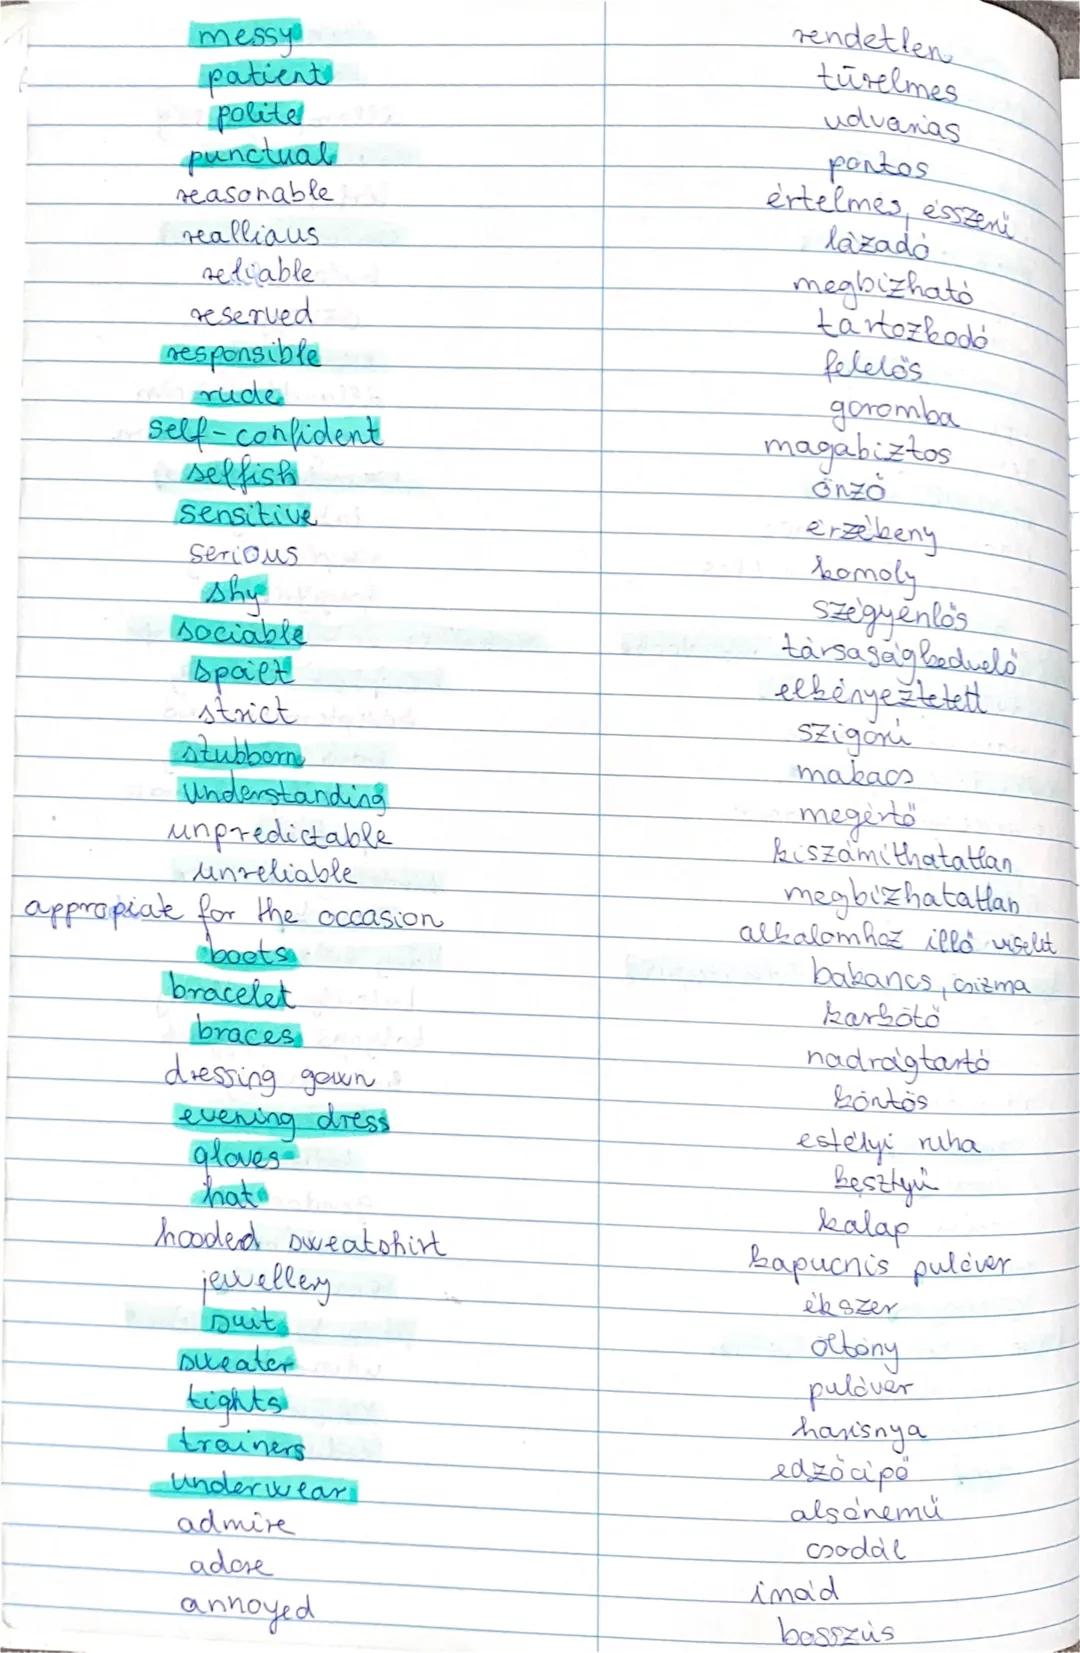 messy rendetlen
patient türelmes
polite udvarias
punctual pontos
reasonable értelmes, ésszerű
realliaus lázadó
reliable megbízható
reserved tartozkodó
responsible felelős
rude goromba
self-confident magabiztos
selfish önző
sensitive érzékeny
serious komoly
shy szégyenlős
sociable társaságkedvelő
spoilt elkényeztetett
strict szigorú
stubborn makacs
understanding megértő
unpredictable kiszámíthatatlan
unreliable megbízhatatlan
appropiate for the occasion alkalomhoz illő viselet
boots bakancs, csizma
bracelet karkötő
braces nadrágtartó
dressing gown köntös
evening dress estélyi ruha
gloves kesztyű
hat kalap
hooded sweatshirt kapucnis pulóver
jewellery ékszer
suit öltöny
sweater pulóver
tights harisnya
trainers edzőcipő
underwear alsónemű
admire csodál
adore imád
annoyed bosszús